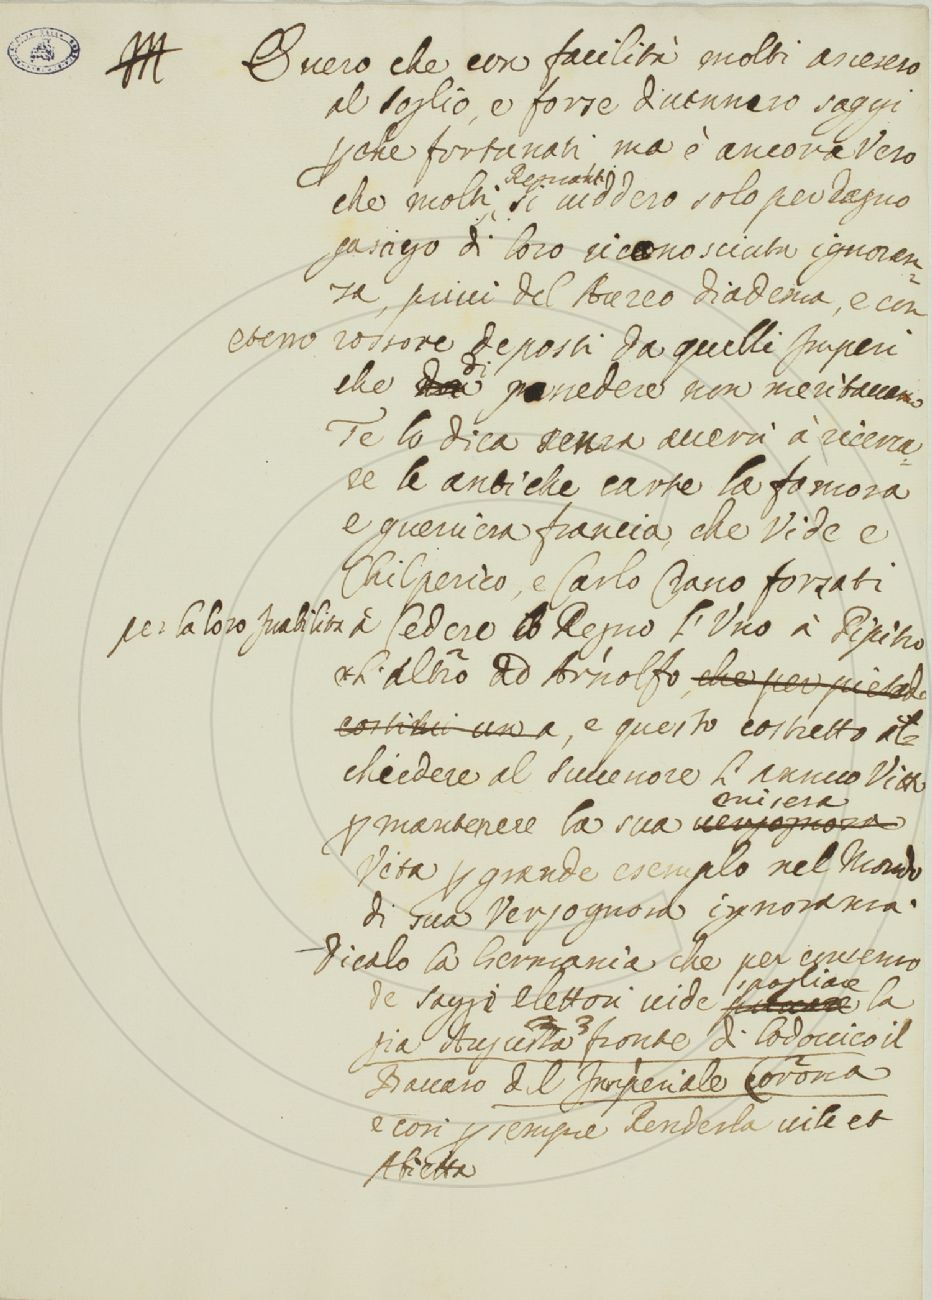 È vero che con facilità molti ascesero
al soglio, e forse divennero saggi
p che fortunati ma è ancora Vero
che molti Regnanti si viddero solo per degno
gastigo di loro riconosciuta ignoran-
za, privi del Aureo diadema, e con
eterno rossore deposti da quelli Imperi
che di possedere non meritavano
Te lo dica senza avervi à ricerca-
re le antiche carte la famosa
e guerriera francia, che Vide e
Chilperico, e Carlo Crasso forzati
per la loro Inabilità à Cedere il Regno l'Uno à Pipino
e L'altro ad Arnolfo, che per pietade
costitui una, e questo costretto à
chiedere al Successore l'annuo Vitto
p mantenere la sua vergognosa misera
Vita p grande esempio nel Mondo
di sua Vergognosa ignoranza.
Dicalo la Germania che per consenso
de saggi elettori vide spogliare la
già Augusta 3 fronte di Lodovico il
Bavaro del Imperiale Corona
e cosi p sempre Renderla vile et
Abietta